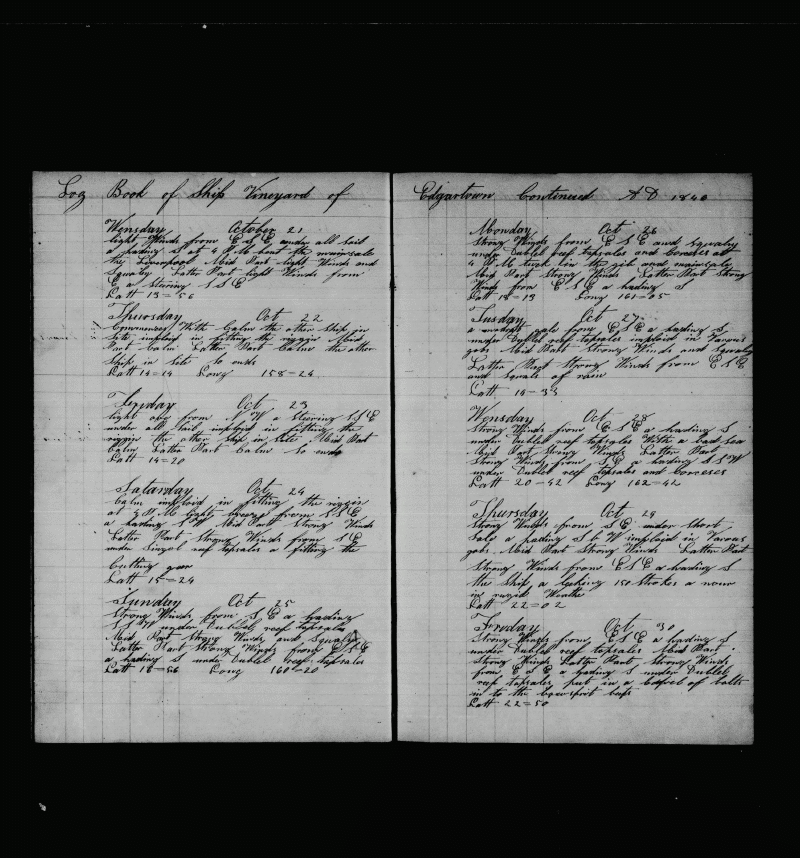 Log Book of Ship Vineyard of
Wensday October 21
light Winds from E S E under all sail
a heading S at 4 P M bent the mainsale
the Liverpool Mid Part light Winds and
Squaly Latter Part light Winds from
E a steering S S E
Latt 13=56
Thursday Oct 22
Commences With Calm the other Ship in
site imploid in fitting the riggin Mid
Part Calm Latter Part Calm the other
Ship in site So ends
Latt 14=14 Long 158=24
Friday Oct 23
light from N W a steering S S E
under all sail imploid in fitting the
riggin the other ship in site Mid Part
Calm Latter Part Calm So ends
Latt 14=20
Satarday Oct 24
Calm imploid in fitting the riggin
at 3 P M light breeze from S S E
a heading S W Mid Part Strong Winds
Latter Part Strong Winds from S E
under Singel reef topsales a fitting the
Cutting gear
Latt 15=24
Sunday Oct 25
Strong Winds from S E a heading
S S W under Dublel reef topsales
Mid Part Strong Winds and Squaly
Latter Part Strong Winds from E S E
a heading S under Dublel reef topsales
Latt 16=56 Long 160=20
Edgartown Continued A D 1840
Monday Oct 26
Strong Winds from E S E and Squaly
under Dublel reef topsales and Corses at
4 P M tuck in the gib and mainsale
Mid Part Strong Winds Latter Part Strong
Winds from E S E a heading S
Latt 18=13 Long 161=05
Tusday Oct 27
a moderate gale from E S E a heading S
under Dublel reef topsales imploid in Varous
gobs Mid Part Strong Winds and Squaly
Latter Part Strong Winds from E S E
and Squals of rain
Latt 19=33
Wensday Oct 28
Strong Winds from E S E a heading S
under Dublel reef topsales With a bad sea
Mid Part Strong Winds Latter Part
Strong Winds from S E a heading S S W
under Dublel reef topsales and Corses
Latt 20=42 Long 162=42
Thursday Oct 29
Strong Winds from S E under Short
Sale a heading S b W imploid in Varous
gobs Mid Part Strong Winds Latter Part
Strong Winds from E S E a heading S
the Ship a leaking 150 Strokes a nour
in rugid Weathe
Latt 22=02
Friday Oct 30
Strong Winds from E S E a heading S
under Dublel reef topsales Mid Part
Strong Winds Latter Part Strong Winds
from E S E a heading S under Dublel
reef topsales put in a of bolts
in to the bowsprit
Latt 22=50